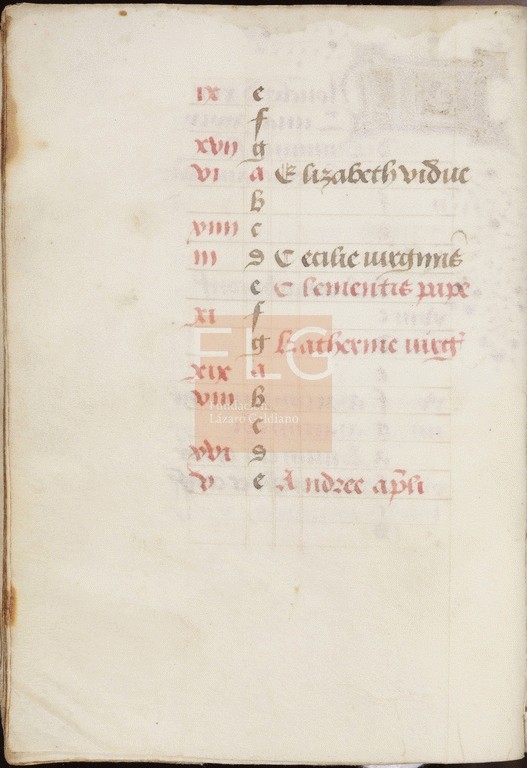 ix e
f
xvij g
vi a Elizabeth vidue
b
viiij c
iij d Cecilie virginis
e Clementis pape
xi f
g Katherine virg
xix a
viij b
c
xvi d
v e Andree apli
FLG
Fundación
Lázaro Galdiano